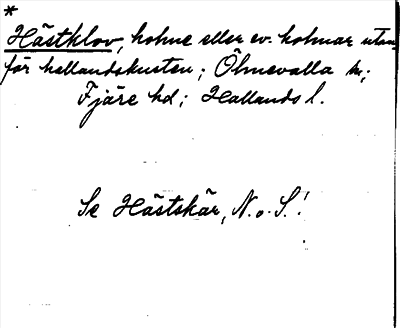 *
Hästklov, holme eller ev. holmar utan-
för hallandskusten; Ölmevalla sn;
Fjäre hd; Hallands l.
Se Hästskär, N. o. S.!